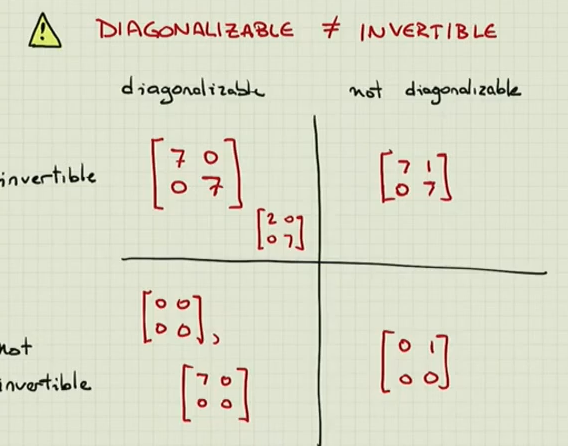 ! DIAGONALIZABLE ≠ INVERTIBLE
diagonalizable not diagonalizable
invertible
[7 0
0 7]
[2 0
0 7]
[7 1
0 7]
not
invertible
[0 0
0 0],
[7 0
0 0]
[0 1
0 0]